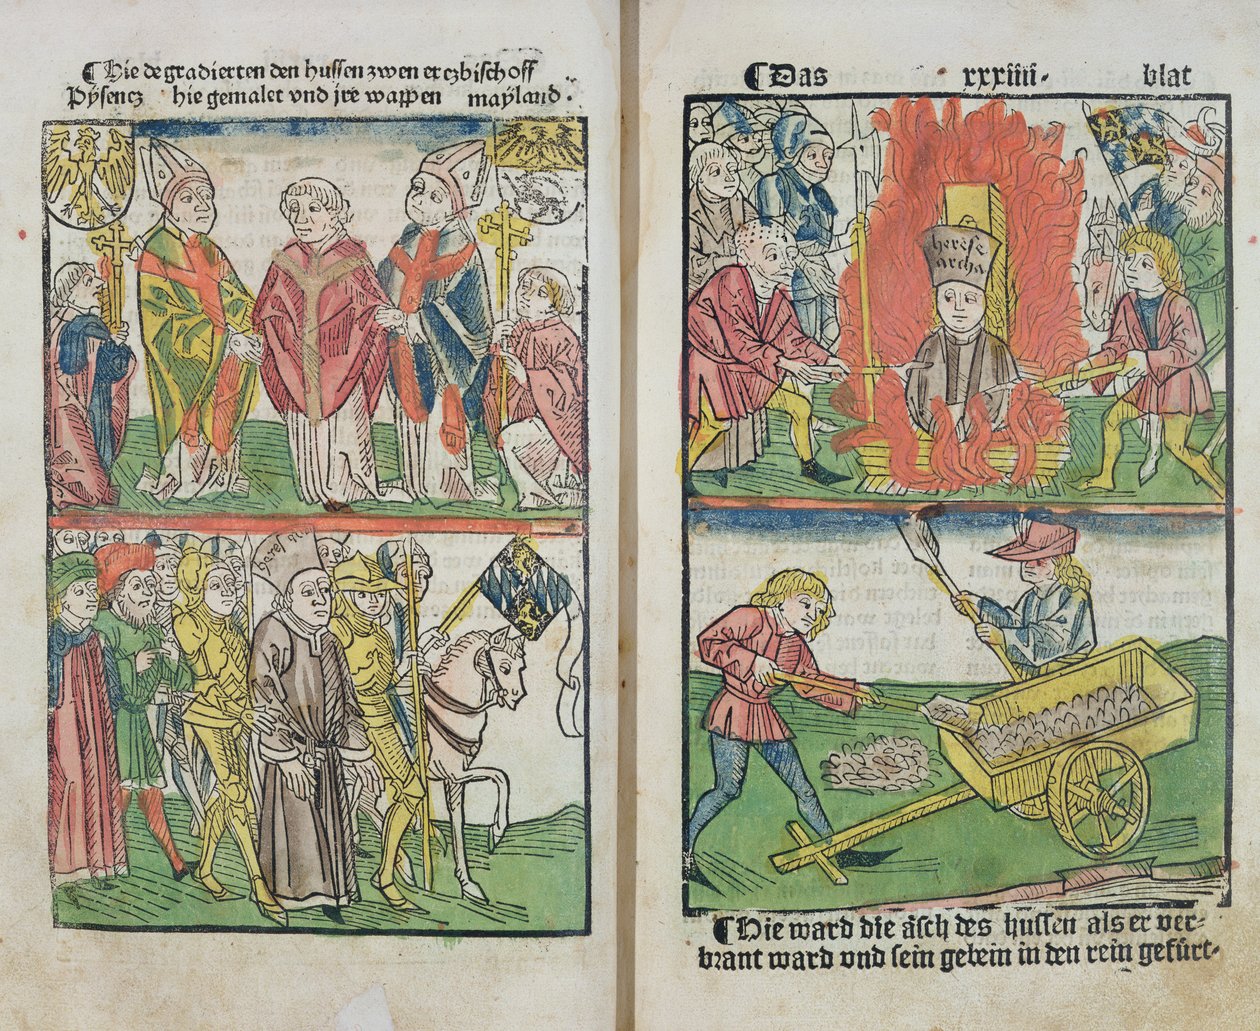 ¶ Hie degradierten den hussen zwen erczbischoff
Pÿsencz hie gemalet vnd jre wappen maÿland.
¶ Das xxxiiii. blat
heresse
archa
¶ Hie ward die äsch des hussen als er ver-
brant ward vnd sein gebein in den rein gefürt.